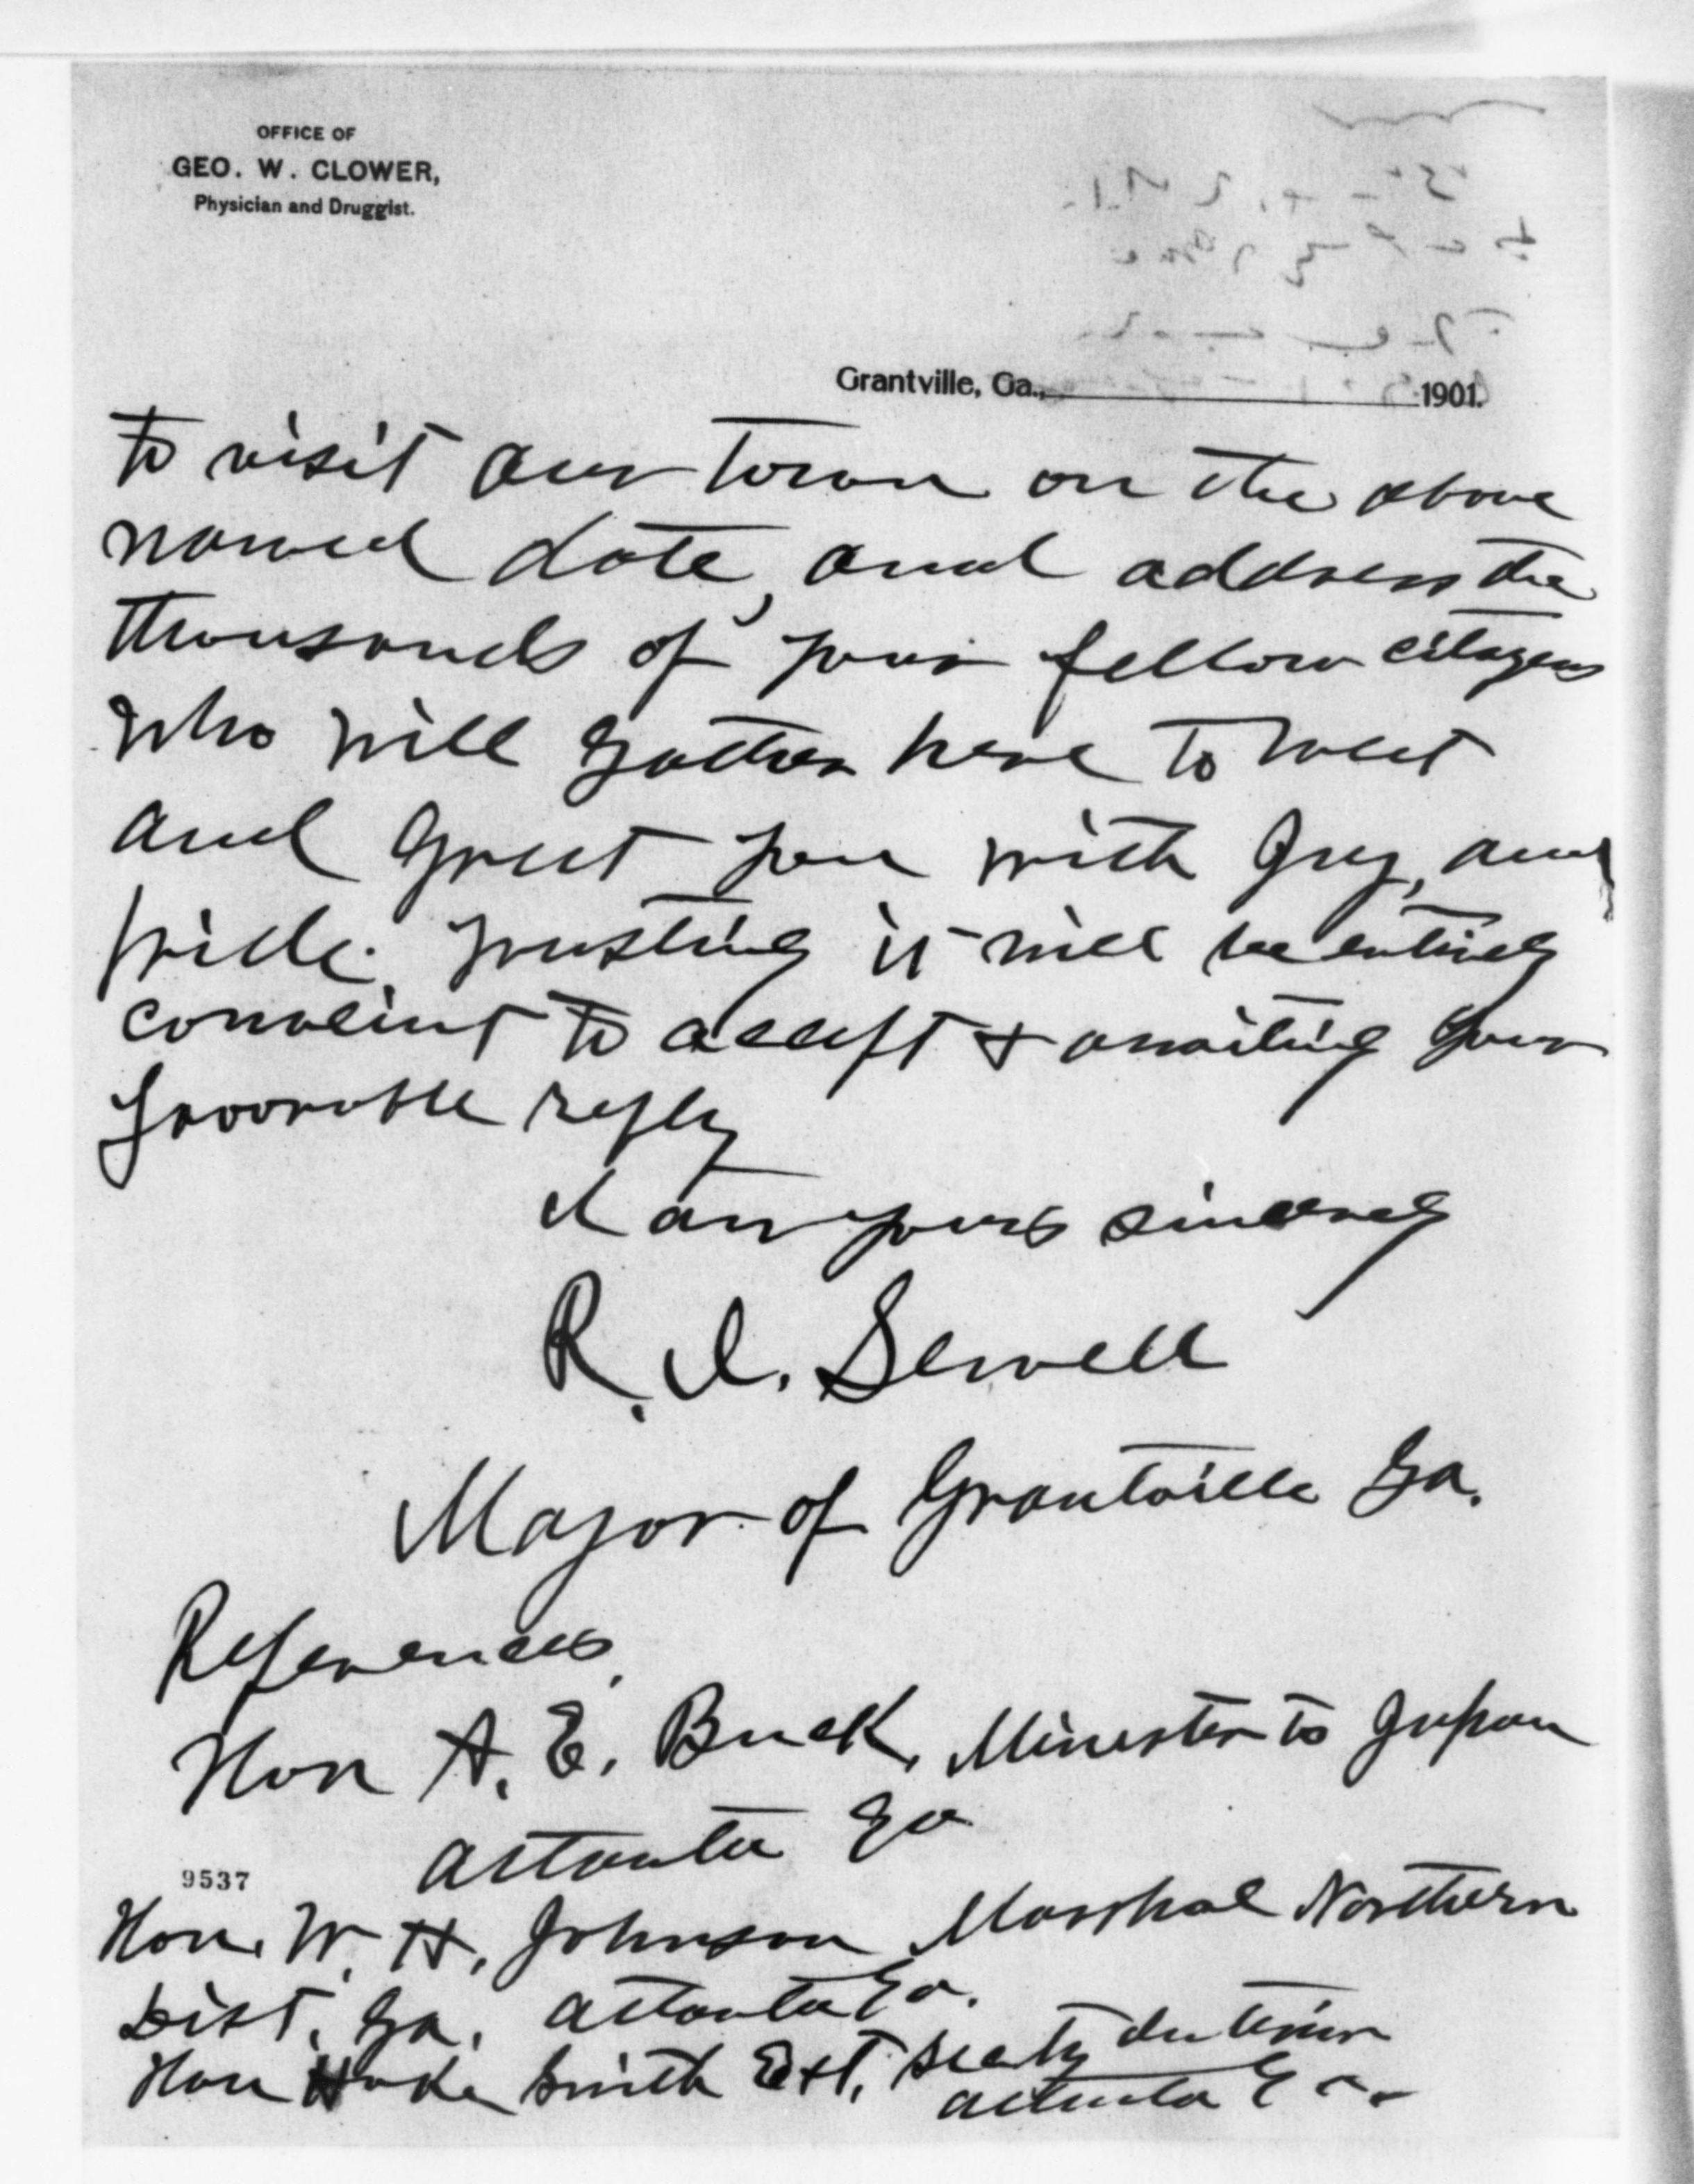 OFFICE OF
GEO. W. CLOWER,
Physician and Druggist.
Grantville, Ga., 1901.
to visit our town on the above
named date, and address the
thousands of your fellow citizens
who will gather here to meet
and greet you with Joy, and
pride. Trusting it will be entirely
convenint to accept & awaiting your
favorable reply
I am yours sincerely
R. I. Sewell
Mayor of Grantville Ga.
References,
Hon A. E. Buck, Minester to Japan
Atlanta Ga
9537
Hon. W. H. Johnson Marshal Northern
Dist. Ga. Atlanta Ga.
Hon Hoke Smith Ext. Secty Interior
Atlanta Ga.